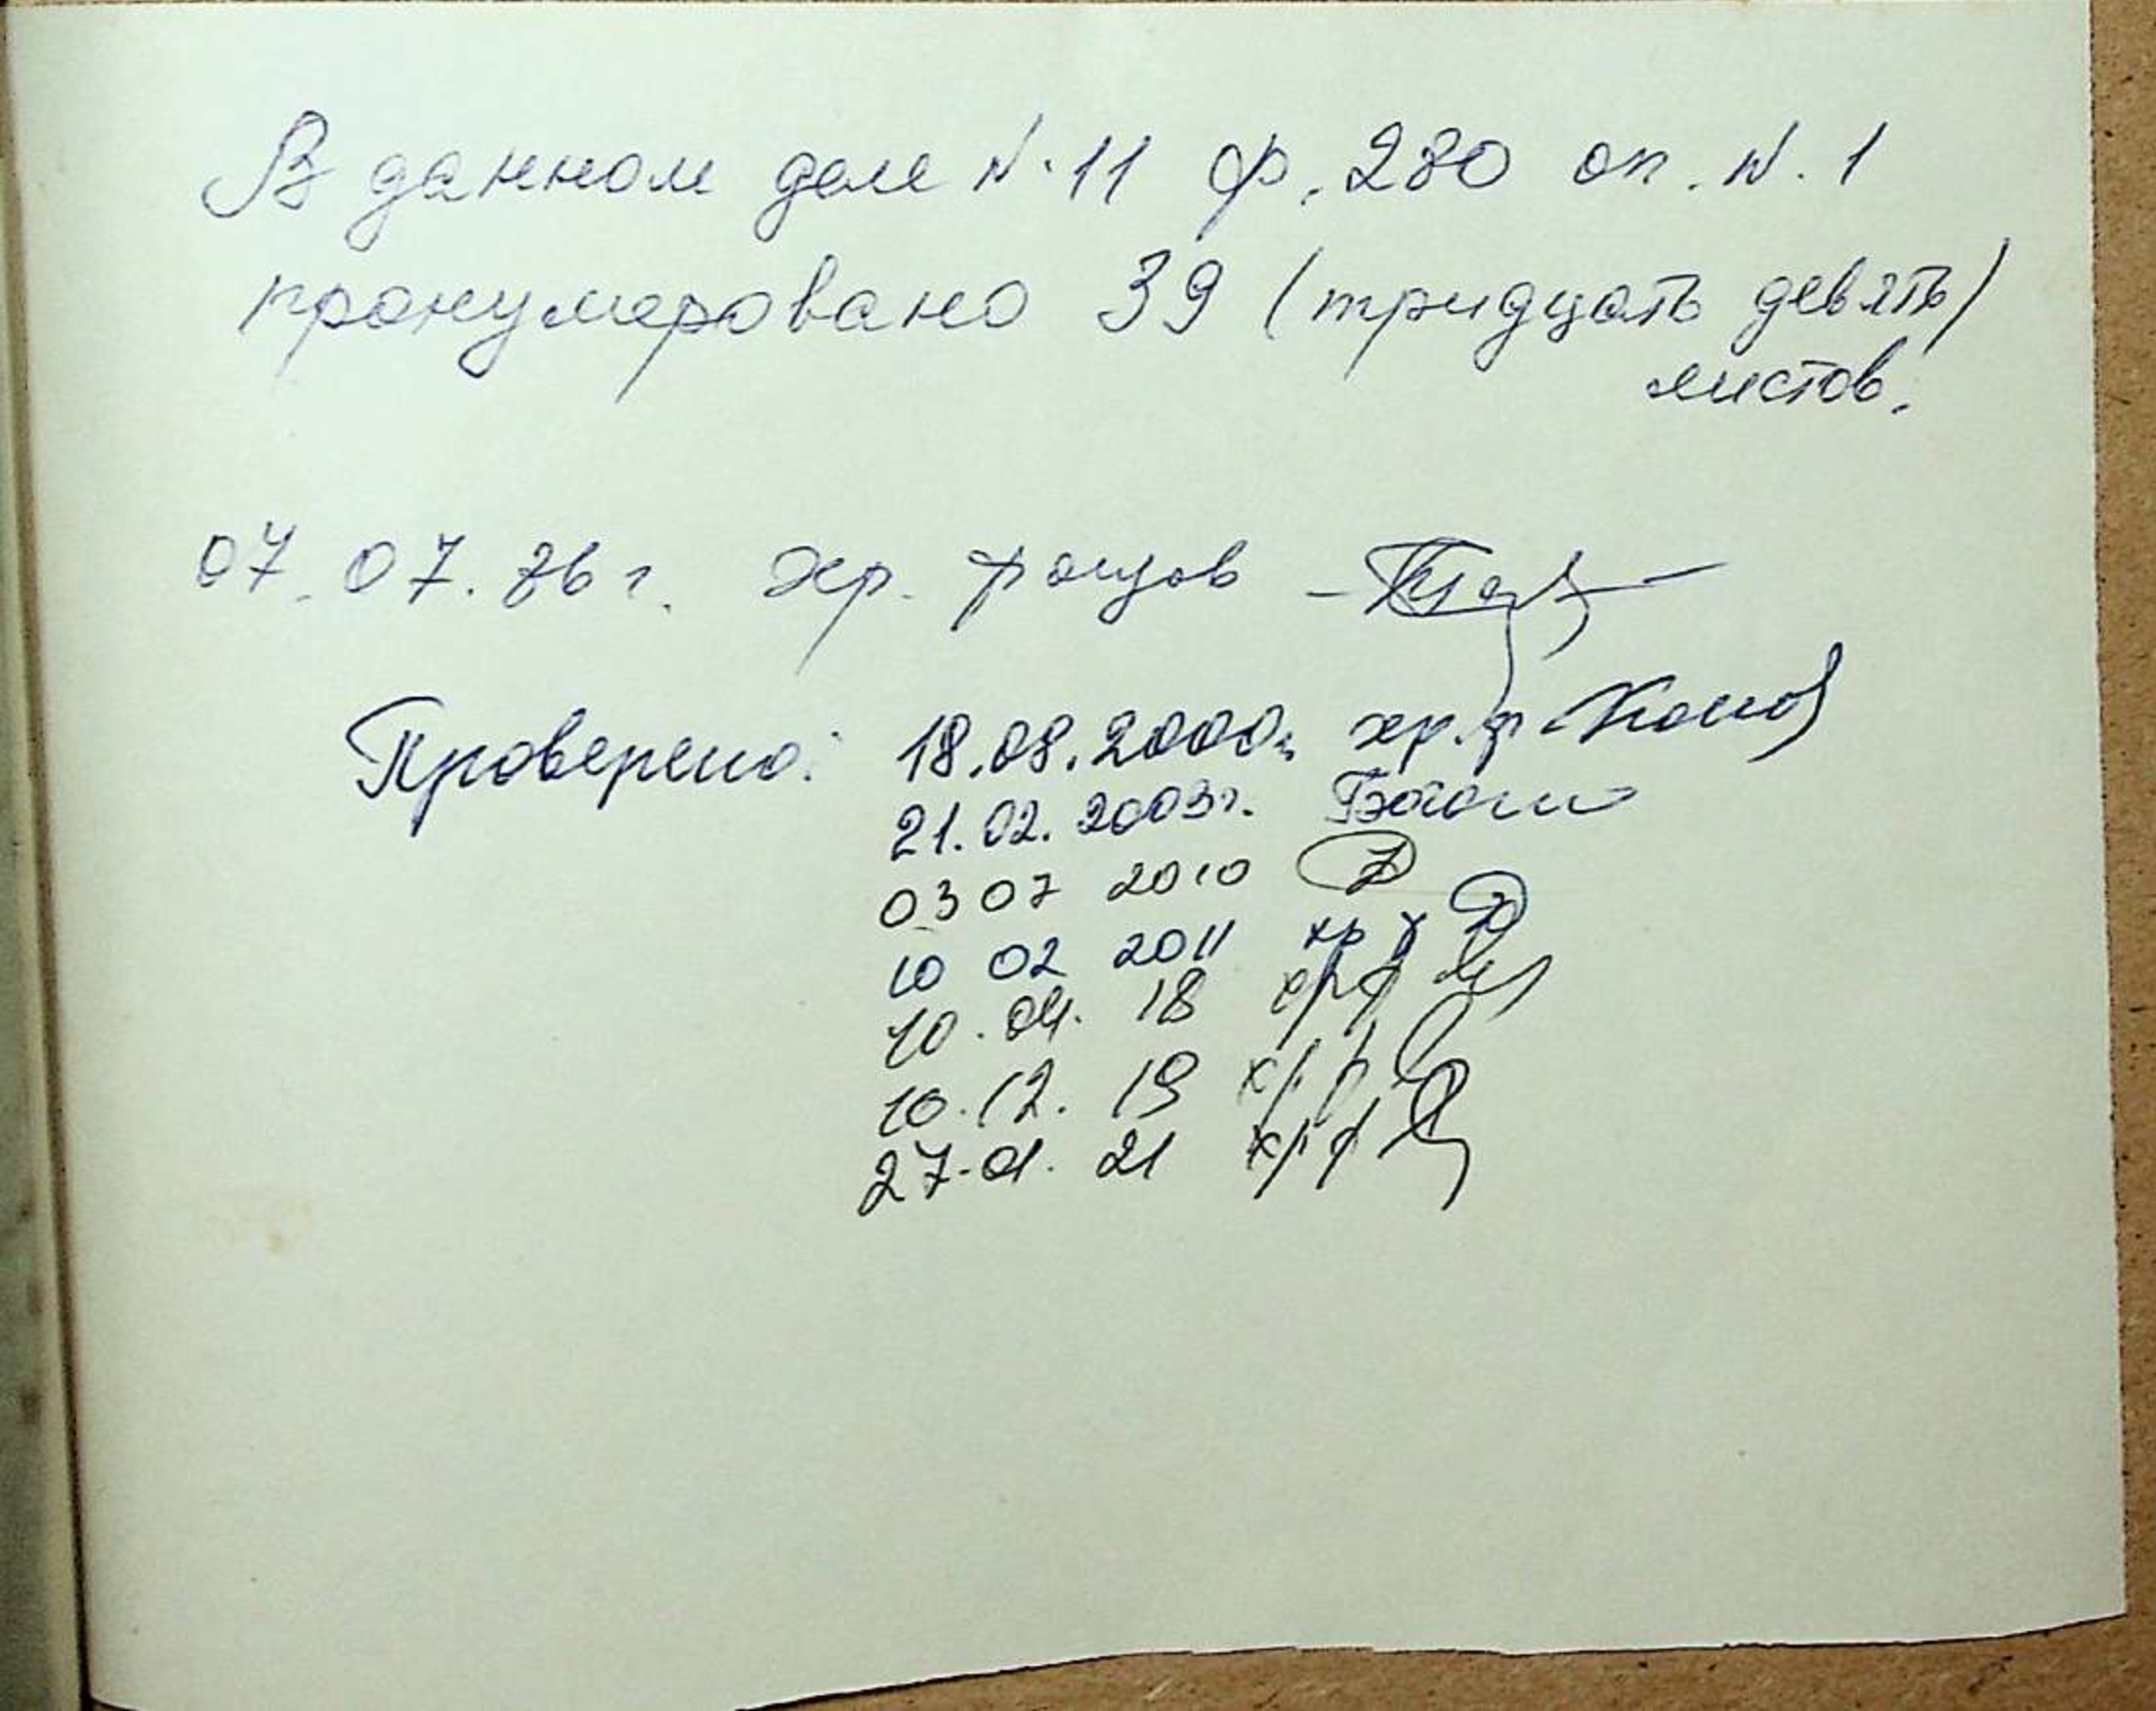 В данном деле №11 ф. 280 оп. №. 1
пронумеровано 39 (тридцать девять)
листов.
07.07.86 г. хр. фондов
Проверено: 18.08.2000г. хр.ф
21.02.2003г.
03 07 2010
10 02 2011 хр ф
10.04. 18 хрф
10.12. 19 хр ф
27.01. 21 хр ф